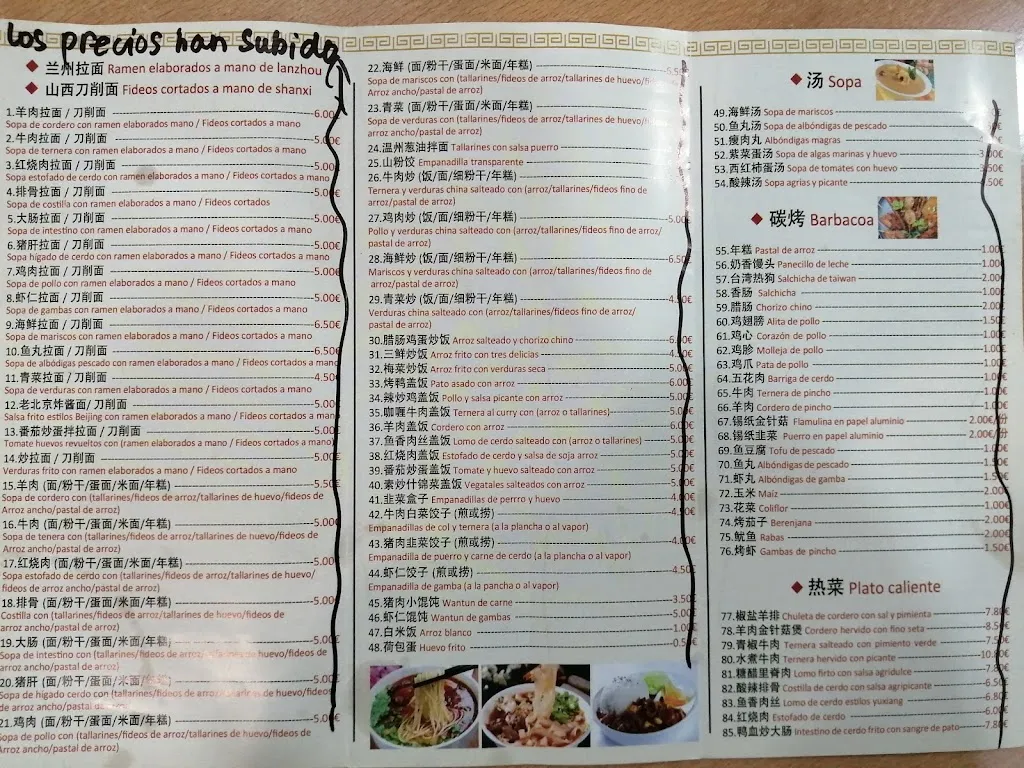 Los precios han subido
◆ 兰州拉面 Ramen elaborados a mano de lanzhou
◆ 山西刀削面 Fideos cortados a mano de shanxi
1.羊肉拉面 / 刀削面 6.00
Sopa de cordero con ramen elaborados mano / Fideos cortados a mano
2.牛肉拉面 / 刀削面 5.00€
Sopa de ternera con ramen elaborados a mano / Fideos cortados a mano
3.红烧肉拉面 / 刀削面 5.00€
Sopa estofado de cerdo con ramen elaborados a mano / Fideos cortados a mano
4.排骨拉面 / 刀削面 5.00€
Sopa de costilla con ramen elaborados a mano / Fideos cortados
5.大肠拉面 / 刀削面 5.00€
Sopa de intestino con ramen elaborados a mano / Fideos cortados a mano
6.猪肝拉面 / 刀削面 5.00€
Sopa higado de cerdo con ramen elaborados a mano / Fideos cortados a mano
7.鸡肉拉面 / 刀削面 5.00€
Sopa de pollo con ramen elaborados a mano / Fideos cortados a mano
8.虾仁拉面 / 刀削面 5.00€
Sopa de gambas con ramen elaborados a mano / Fideos cortados a mano
9.海鲜拉面 / 刀削面 6.50€
Sopa de mariscos con ramen elaborados a mano / Fideos cortados a mano
10.鱼丸拉面 / 刀削面 6.50€
Sopa de albódigas pescado con ramen elaborados a mano / Fideos cortados a mano
11.青菜拉面 / 刀削面 4.50€
Sopa de verduras con ramen elaborados a mano / Fideos cortados a mano
12.老北京炸酱面/ 刀削面 5.00
Salsa frito estilos Beijing con ramen elaborados a mano / Fideos cortados a mano
13.番茄炒蛋拌拉面 / 刀削面 5.00
Tomate huevos revueltos con (ramen elaborados a mano / Fideos cortados a mano)
14.炒拉面 / 刀削面 5.00€
Verduras frito con ramen elaborados a mano / Fideos cortados a mano
15.羊肉 (面/粉干/蛋面/米面/年糕) 5.50€
Sopa de cordero con (tallarines/fideos de arroz/tallarines de huevo/fideos de
Arroz ancho/pastal de arroz)
16.牛肉 (面/粉干/蛋面/米面/年糕) 5.00
Sopa de tenera con (tallarines/fideos de arroz/tallarines de huevo/fideos de
Arroz ancho/pastal de arroz)
17.红烧肉 (面/粉干/蛋面/米面/年糕) 5.00€
Sopa estofado de cerdo con (tallarines/fideos de arroz/tallarines de huevo/
fideos de arroz ancho/pastal de arroz)
18.排骨 (面/粉干/蛋面/米面/年糕) 5.00
Costilla con (tallarines/fideos de arroz/tallarines de huevo/fideos de
Arroz ancho/pastal de arroz)
19.大肠 (面/粉干/蛋面/米面/年糕) 5.00€
Sopa de intestino con (tallarines/fideos de arroz/tallarines de huevo/fideos de
arroz ancho/pastal de arroz)
20.猪肝 (面/粉干/蛋面/米面/年糕) 5.00€
Sopa de higado cerdo con (tallarines/fideos de arroz/tallarines de huevo/fideos
de arroz ancho/pastal de arroz)
21.鸡肉 (面/粉干/蛋面/米面/年糕) 5.00€
Sopa de pollo con (tallarines/fideos de arroz/tallarines de huevo/fideos de
Arroz ancho/pastal de arroz)
22.海鲜 (面/粉干/蛋面/米面/年糕) 5.50€
Sopa de mariscos con (tallarines/fideos de arroz/tallarines de huevo/fideos
Arroz ancho/pastal de arroz)
23.青菜 (面/粉干/蛋面/米面/年糕)
Sopa de verduras con (tallarines/fideos de arroz/tallarines de huevo/fideos de
arroz ancho/pastal de arroz)
24.温州葱油拌面 Tallarines con salsa puerro
25.山粉饺 Empanadilla transparente
26.牛肉炒 (饭/面/细粉干/年糕)
Ternera y verduras china salteado con (arroz/tallarines/fideos fino de
arroz/pastal de arroz)
27.鸡肉炒 (饭/面/细粉干/年糕) 5.00€
Pollo y verduras china salteado con (arroz/tallarines/fideos fino de arroz/
pastal de arroz)
28.海鲜炒 (饭/面/细粉干/年糕) 6.50€
Mariscos y verduras china salteado con (arroz/tallarines/fideos fino de
arroz/pastal de arroz)
29.青菜炒 (饭/面/细粉干/年糕) 4.50€
Verduras china salteado con (arroz/tallarines/fideos fino de arroz/
pastal de arroz)
30.腊肠鸡蛋炒饭 Arroz salteado y chorizo chino 6.00€
31.三鲜炒饭 Arroz frito con tres delicias 4.50€
32.梅菜炒饭 Arroz frito con verduras seca 5.00€
33.烤鸭盖饭 Pato asado con arroz 6.00€
34.辣炒鸡盖饭 Pollo y salsa picante con arroz 5.00€
35.咖喱牛肉盖饭 Ternera al curry con (arroz o tallarines) 5.00€
36.羊肉盖饭 Cordero con arroz 6.00€
37.鱼香肉丝盖饭 Lomo de cerdo salteado con (arroz o tallarines) 5.00€
38.红烧肉盖饭 Estofado de cerdo y salsa de soja arroz 5.00€
39.番茄炒蛋盖饭 Tomate y huevo salteado con arroz 5.00€
40.素炒什锦菜盖饭 Vegatales salteados con arroz 5.00€
41.韭菜盒子 Empanadillas de perrro y huevo 4.00€
42.牛肉白菜饺子 (煎或捞) 4.50€
Empanadillas de col y ternera (a la plancha o al vapor)
43.猪肉韭菜饺子 (煎或捞) 4.00€
Empanadilla de puerro y carne de cerdo (a la plancha o al vapor)
44.虾仁饺子 (煎或捞) 4.50€
Empanadilla de gamba (a la pancha o al vapor)
45.猪肉小馄饨 Wantun de carne 3.50€
46.虾仁馄饨 Wantun de gambas 5.00€
47.白米饭 Arroz blanco 1.00€
48.荷包蛋 Huevo frito 0.50€
◆ 汤 Sopa
49.海鲜汤 Sopa de mariscos
50.鱼丸汤 Sopa de albóndigas de pescado
51.瘦肉丸 Albóndigas magras
52.紫菜蛋汤 Sopa de algas marinas y huevo 3.00€
53.西红柿蛋汤 Sopa de tomates con huevo 3.50€
54.酸辣汤 Sopa agrias y picante .50€
◆ 碳烤 Barbacoa
55.年糕 Pastal de arroz 1.00€
56.奶香馒头 Panecillo de leche 1.00€
57.台湾热狗 Salchicha de taiwan 2.00€
58.香肠 Salchicha 1.00€
59.腊肠 Chorizo chino 2.00€
60.鸡翅膀 Alita de pollo 1.50€
61.鸡心 Corazón de pollo 1.00€
62.鸡胗 Molleja de pollo 1.00€
63.鸡爪 Pata de pollo 1.00€
64.五花肉 Barriga de cerdo 1.00€
65.牛肉 Ternera de pincho 1.00€
66.羊肉 Cordero de pincho 1.00€
67.锡纸金针菇 Flamulina en papel aluminio 2.00€/份
68.锡纸韭菜 Puerro en papel aluminio 2.00€/份
69.鱼豆腐 Tofu de pescado 1.00€
70.鱼丸 Albóndigas de pescado 1.50€
71.虾丸 Albóndigas de gamba 1.50€
72.玉米 Maíz 2.00€
73.花菜 Coliflor 1.00€
74.烤茄子 Berenjena 2.00€
75.鱿鱼 Rabas 2.00€
76.烤虾 Gambas de pincho 1.50€
◆ 热菜 Plato caliente
77.椒盐羊排 Chuleta de cordero con sal y pimienta 7.80€
78.羊肉金针菇煲 Cordero hervido con fino seta 8.50€
79.青椒牛肉 Ternera salteado con pimiento verde 7.50€
80.水煮牛肉 Ternera hervido con picante 10.80€
81.糖醋里脊肉 Lomo frito con salsa agridulce 7.80€
82.酸辣排骨 Costilla de cerdo con salsa agripicante 6.50€
83.鱼香肉丝 Lomo de cerdo estilos yuxiang 6.80€
84.红烧肉 Estofado de cerdo 6.00€
85.鸭血炒大肠 Intestino de cerdo frito con sangre de pato 7.80€